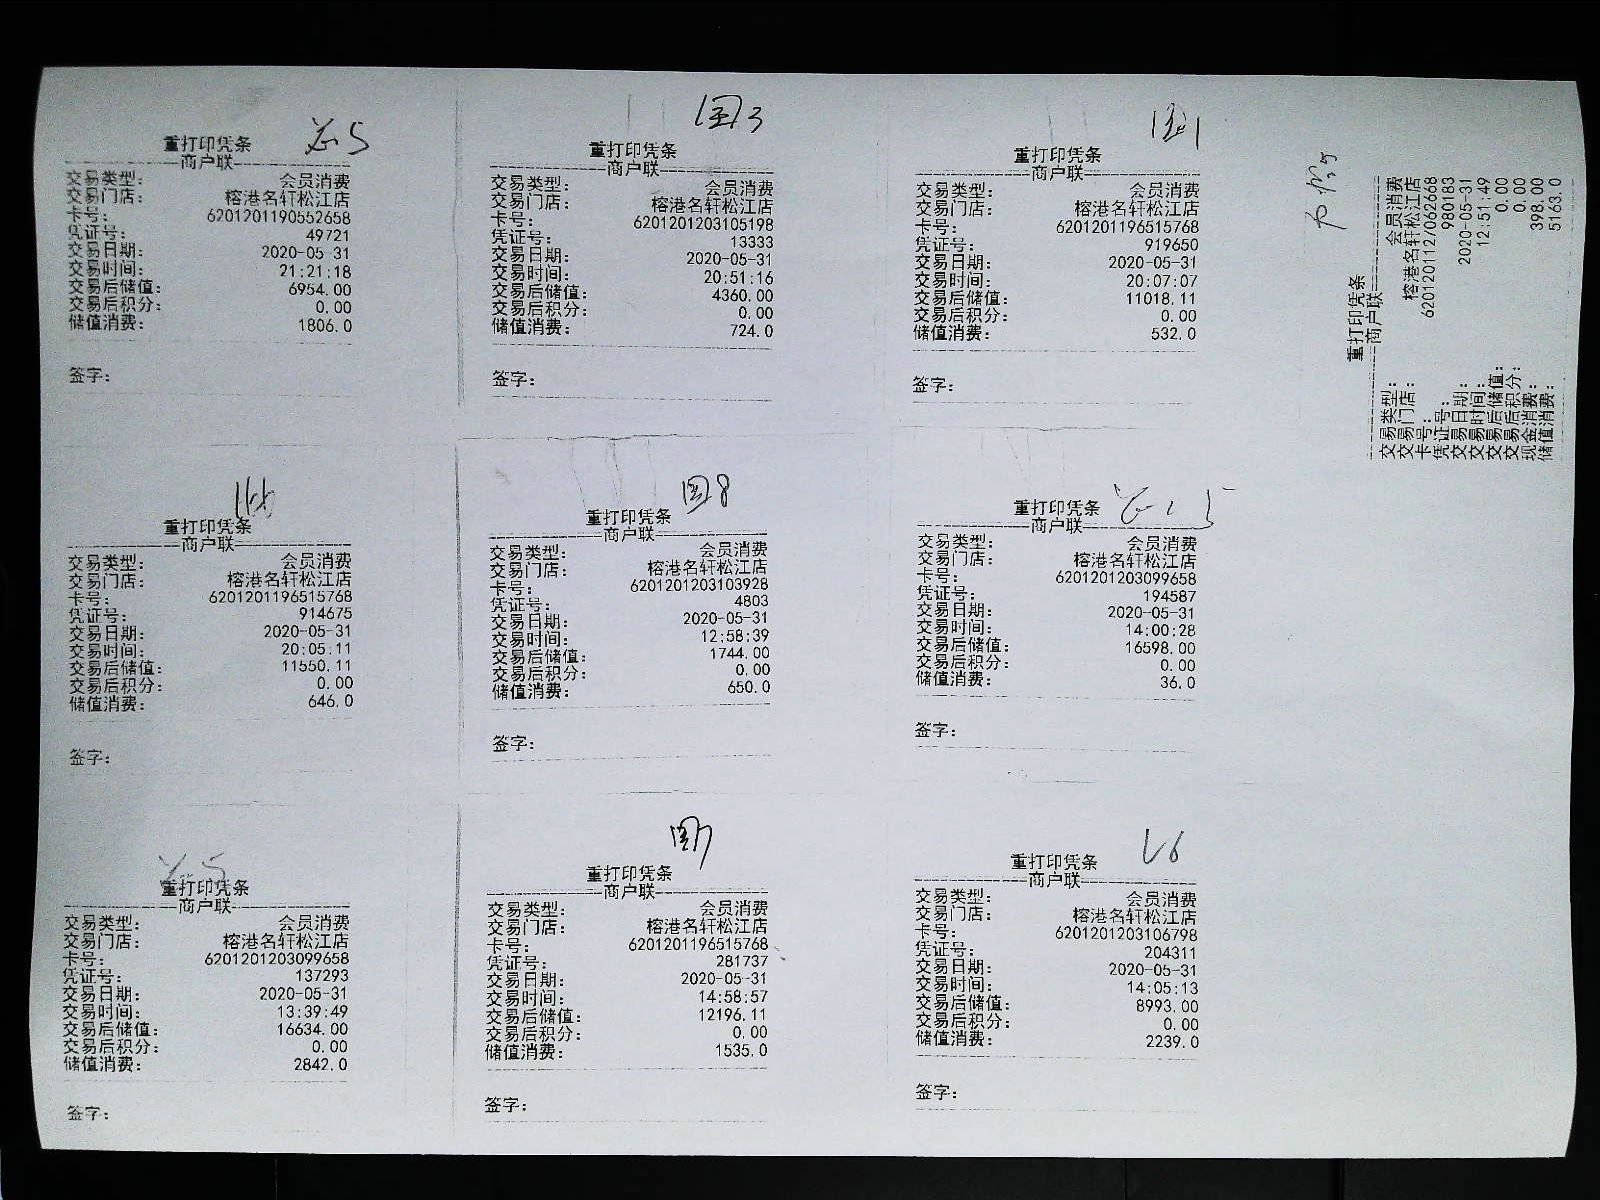 重打印凭条
商户联
交易类型： 会员消费
交易门店： 榕港名轩松江店
卡号： 6201201190552658
凭证号： 49721
交易日期： 2020-05-31
交易时间： 21:21:18
交易后储值： 6954.00
交易后积分： 0.00
储值消费： 1806.0
签字：
国3
重打印凭条
商户联
交易类型： 会员消费
交易门店： 榕港名轩松江店
卡号： 6201201203105198
凭证号： 13333
交易日期： 2020-05-31
交易时间： 20:51:16
交易后储值： 4360.00
交易后积分： 0.00
储值消费： 724.0
签字：
国1
重打印凭条
商户联
交易类型： 会员消费
交易门店： 榕港名轩松江店
卡号： 6201201196515768
凭证号： 919650
交易日期： 2020-05-31
交易时间： 20:07:07
交易后储值： 11018.11
交易后积分： 0.00
储值消费： 532.0
签字：
重打印凭条
商户联
交易类型： 会员消费
交易门店： 榕港名轩松江店
卡号： 620120112/062668
凭证号： 980183
交易日期： 2020-05-31
交易时间： 12:51:49
交易后储值： 0.00
交易后积分： 0.00
现金消费： 398.00
储值消费： 5163.0
重打印凭条
商户联
交易类型： 会员消费
交易门店： 榕港名轩松江店
卡号： 6201201196515768
凭证号： 914675
交易日期： 2020-05-31
交易时间： 20:05:11
交易后储值： 11550.11
交易后积分： 0.00
储值消费： 646.0
签字：
国8
重打印凭条
商户联
交易类型： 会员消费
交易门店： 榕港名轩松江店
卡号： 6201201203103928
凭证号： 4803
交易日期： 2020-05-31
交易时间： 12:58:39
交易后储值： 1744.00
交易后积分： 0.00
储值消费： 650.0
签字：
重打印凭条
商户联
交易类型： 会员消费
交易门店： 榕港名轩松江店
卡号： 6201201203099658
凭证号： 194587
交易日期： 2020-05-31
交易时间： 14:00:28
交易后储值： 16598.00
交易后积分： 0.00
储值消费： 36.0
签字：
重打印凭条
商户联
交易类型： 会员消费
交易门店： 榕港名轩松江店
卡号： 6201201203099658
凭证号： 137293
交易日期： 2020-05-31
交易时间： 13:39:49
交易后储值： 16634.00
交易后积分： 0.00
储值消费： 2842.0
签字：
国7
重打印凭条
商户联
交易类型： 会员消费
交易门店： 榕港名轩松江店
卡号： 6201201196515768
凭证号： 281737
交易日期： 2020-05-31
交易时间： 14:58:57
交易后储值： 12196.11
交易后积分： 0.00
储值消费： 1535.0
签字：
V6
重打印凭条
商户联
交易类型： 会员消费
交易门店： 榕港名轩松江店
卡号： 6201201203106798
凭证号： 204311
交易日期： 2020-05-31
交易时间： 14:05:13
交易后储值： 8993.00
交易后积分： 0.00
储值消费： 2239.0
签字：